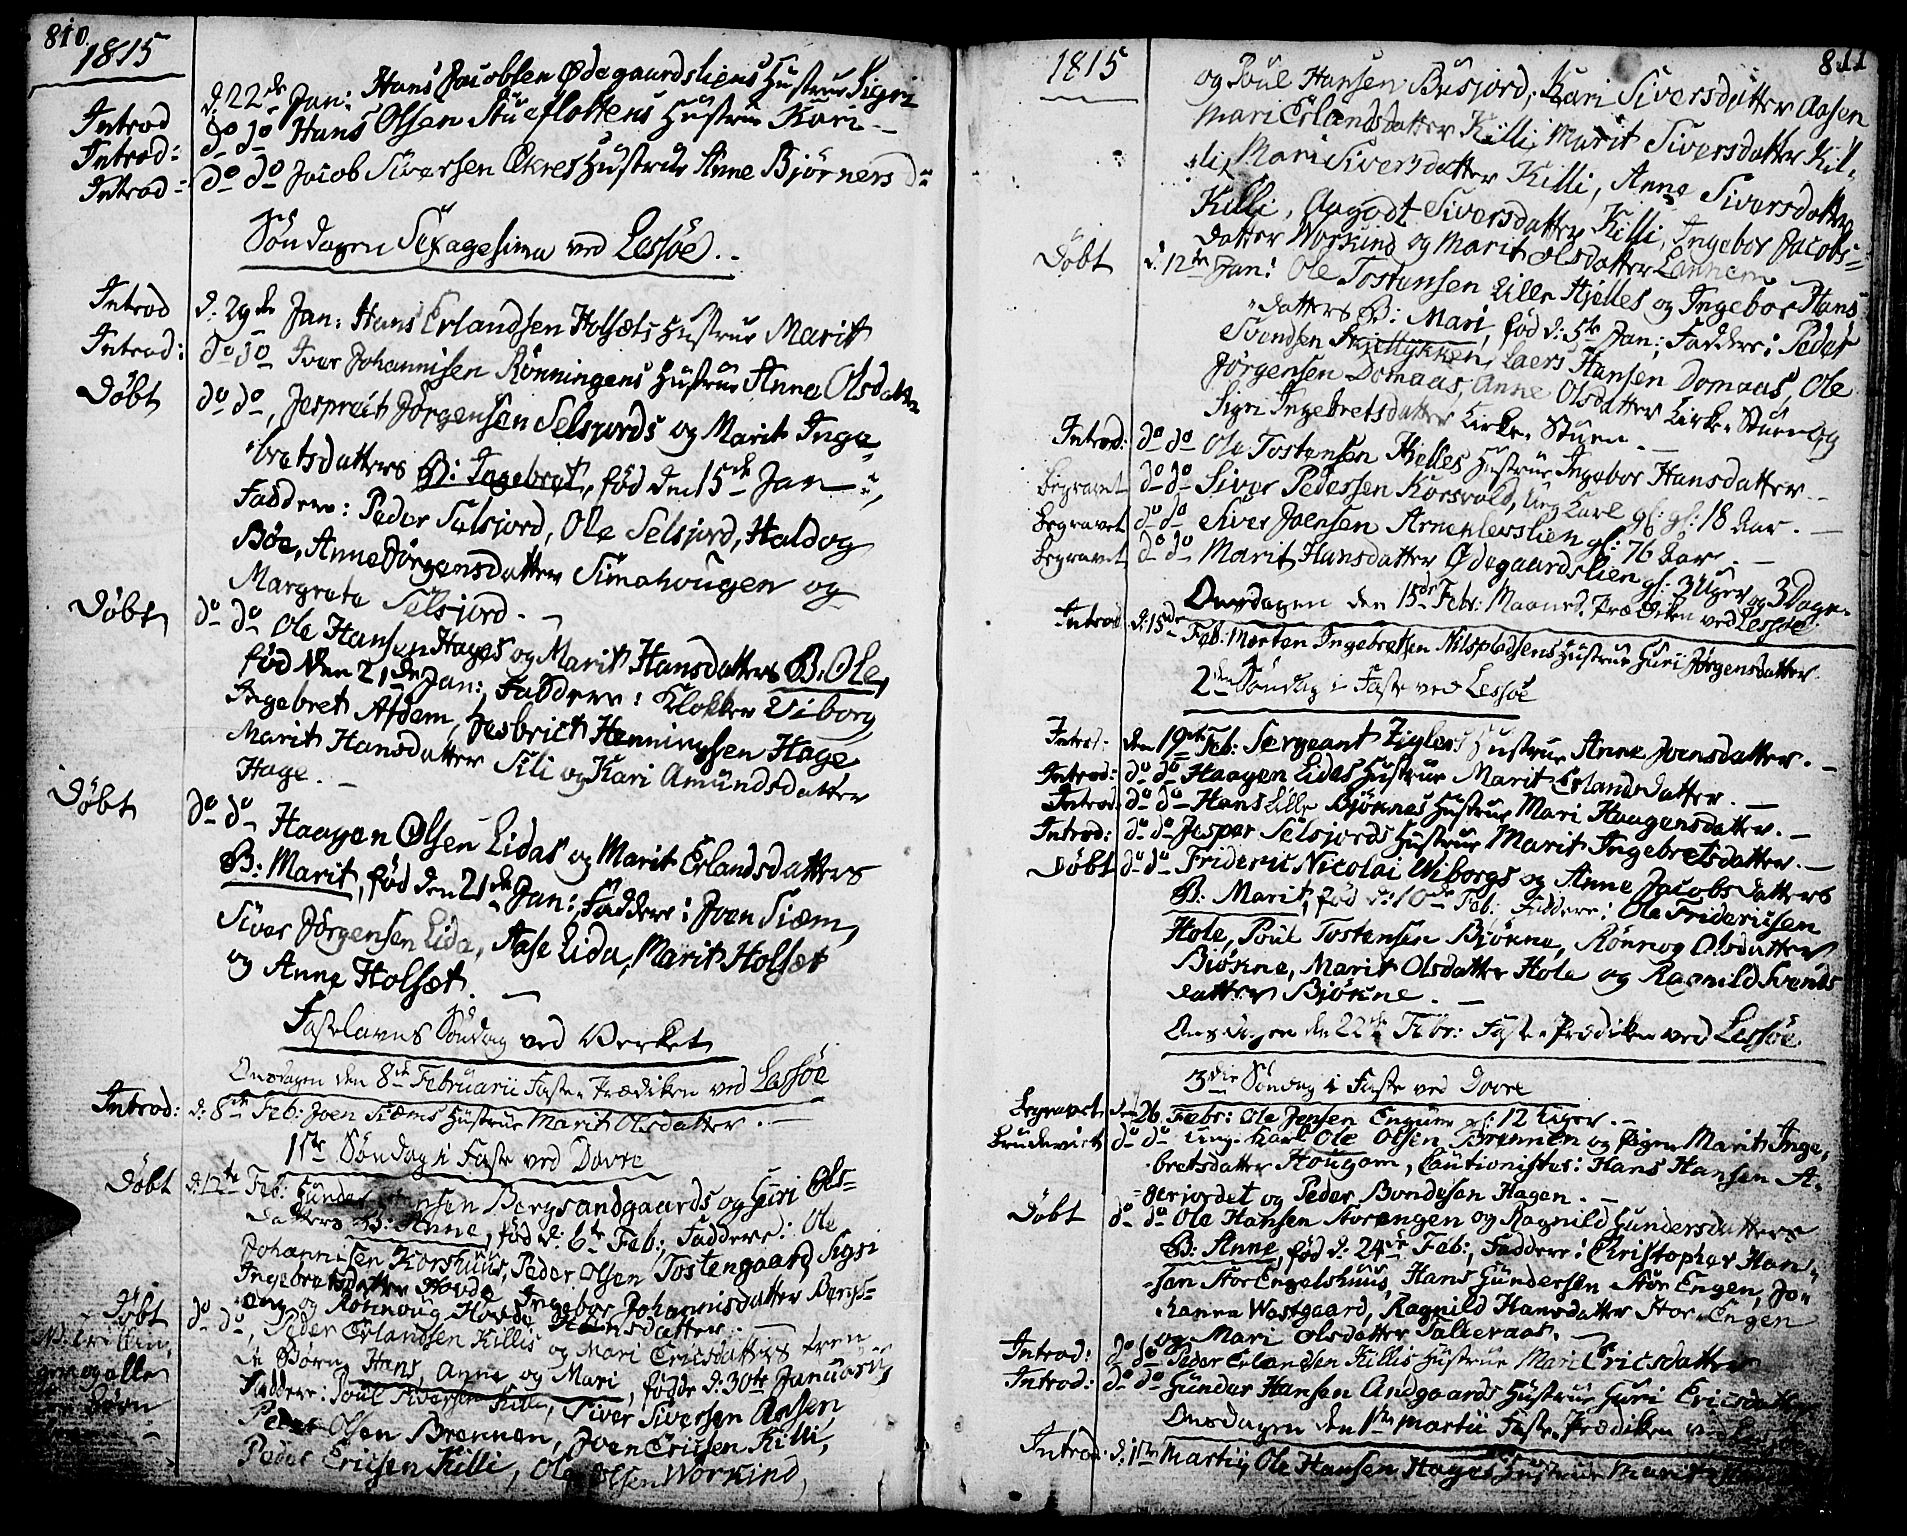 810.
1815
Introd d. 22de Jan: Hans Jacobsen Ødegaardsliens Hustrue Sigri
Introd: do do Hans Olsen Stueflottens Hustrue Kari –
Introd: do do Jacob Siversen Ekres Hustrue Anne Bjørners dr
Søndagen Sexagesima ved Lessøe.
Introd d. 29de Jan: Hans Erlandsen Holsets Hustrue Marit
Introd: do do Iver Johannisen Rønningens Hustrue Anne Olsdatter
Døbt do do, Jespreit Jørgensen Selsjords og Marit Inge-
bretsdatters B: Ingebret, fød den 15de Jan:,
Faddere: Peder Selsjord, Ole Selsjord, Haldog
Bøe, Anne Jørgensdatter Simahougen og
Margrete Selsjord. –
Døbt do do Ole Hansen Hages og Marit Hansdatters B: Ole,
fød den 21de Jan:, Faddere: Klokker Viborg,
Ingebret Afdem, Jesbrict Henningsen Hage
Marit Hansdatter Sili og Kari Amundsdatter
Hage. –
Døbt do do Haagen Olsen Lidas og Marit Erlandsdatters
B: Marit, fød den 21de Jan:, Faddere: Joen Siem,
Siver Jørgensen Lida, Aase Lida, Marit Holset
og Anne Holset. –
Fastelavns Søndag ved Verket
Onsdagen den 8de Februarii Faste Prædiken ved Lessøe
Introd: d. 8de Feb: Joen Siems Hustrue Marit Olsdatter. –
1ste Søndag i Faste ved Dovre
Døbt d. 12te Feb: Gunder Hansen Bergsandgaards og Guri Ols-
datters B: Anne, fød d: 6te Feb:, Faddere: Ole
Johannesen Korshuus, Peder Olsen Tostengaard, Sigri
Ingebretsdatter Hovde, Ingebor Johannisdatter Bergs-
eng og Rønnoug Hovde Hansdatter. –
Døbt do do, Peder Erlandsen Killis og Mari Ericsdatters tven
de Børn Hans, Anne og Mari, fødde d: 30te Januarii,
gene alle Faddere: Poul Siversen Killi, Siver Siversen Aasen
Børn Peder Olsen Brennen, Joen Ericsen Killi,
Peder Ericsen Killi, Ole Olsen Workind,
1815
811
og Poul Hansen Busjord, Kari Siversdatter Aasen
Mari Erlandsdatter Killi, Marit Siversdatter Kil-
li, Mari Siversdatter Killi, Anne Siversdatter
Killi, Aagodt Siversdatter Killi, Ingebor Jacobs-
datter Workind og Marit Olsdatter Lannem
Døbt d. 12te Jan: Ole Tostensen Lille Hjelles og Ingebor Hans
datters B: Mari, fød d: 5te Jan:, Faddere: Peder
Svendsen Skjellykken, Laers Hansen Domaas, Ole
Jørgensen Domaas, Anne Olsdatter Kirke Stuen og
Sigri Ingebretsdatter Kirke Stuen –
Introd: do do Ole Tostensen Hjelles Hustrue Ingebor Hansdatter –
Begravet do do Siver Pedersen Korsvold, Ung Karl gl: 18 Aar. –
Begravet do do Siver Joensen Arneklevslien gl: 76 Aar. –
Begravet do do Marit Hansdatter Ødegaardslien gl: 3 Uger og 3 Dage.
Onsdagen den 15de Febr: Maaned. Prædiken ved Lessøe
Introd d: 15de Feb: Morten Ingebretsen Nilspladsens Hustrue Guri Jørgensdatter.
2den Søndag i Faste ved Lessøe
Introd: den 19de Feb: Sergeant Ziglers Hustrue Anne Joensdatter. –
Introd: do do Haagen Lidas Hustrue Marit Erlandsdatter. –
Introd: do do Hans Lille Bjøknes Hustrue Mari Haagensdatter. –
Introd: do do Jesper Selsjords Hustrue Marit Ingebretsdatter. –
Døbt do do Frideric Nicolai Wiborgs og Anne Jacobsdatters
B: Marit, fød d: 10de Feb: Faddere: Ole Fridericsen
Hole, Poul Tostensen Bjøkne, Rønnog Olsdatter
Bjøkne, Marit Olsdatter Hole og Ragnild Svends
datter Bjøkne. –
Onsdagen den 22de Febr: Faste Prædiken ved Lessøe
3die Søndag i Faste ved Dovre
Begravet den 26 Febr: Ole Jensen Engum gl: 12 Uger. –
Brudeviet do do Ung Karl Ole Olsen Brennen og Pigen Marit Inge-
bretsdatter Hougom, Cautionister: Hans Hansen A-
gerjordet og Peder Bondesen Hagen. –
Døbt do do Ole Hansen Storengen og Ragnild Gundersdatters
B: Anne, fød d: 24de Feb:, Faddere: Christopher Han-
sen Stor Engelshuus, Hans Gundersen Stor Engen, Jo-
hanna Wostgaard, Ragnild Hansdatter Stor Engen
og Mari Olsdatter Talleraas. –
Introd: do do Peder Erlandsen Killis Hustrue Mari Ericsdatter
Introd: do do Gunder Hansen Andgaards Hustrue Guri Ericsdatter
Onsdagen den 1ste Martii Faste Prædiken ved Lessøe
Introd: d. 1ste Martii, Ole Hansen Hages Hustrue Marit